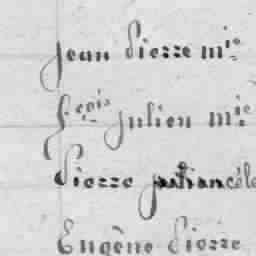 Jean Pierre m^ie
F^çois Julien m^ie
Pierre
Eugène Pierre